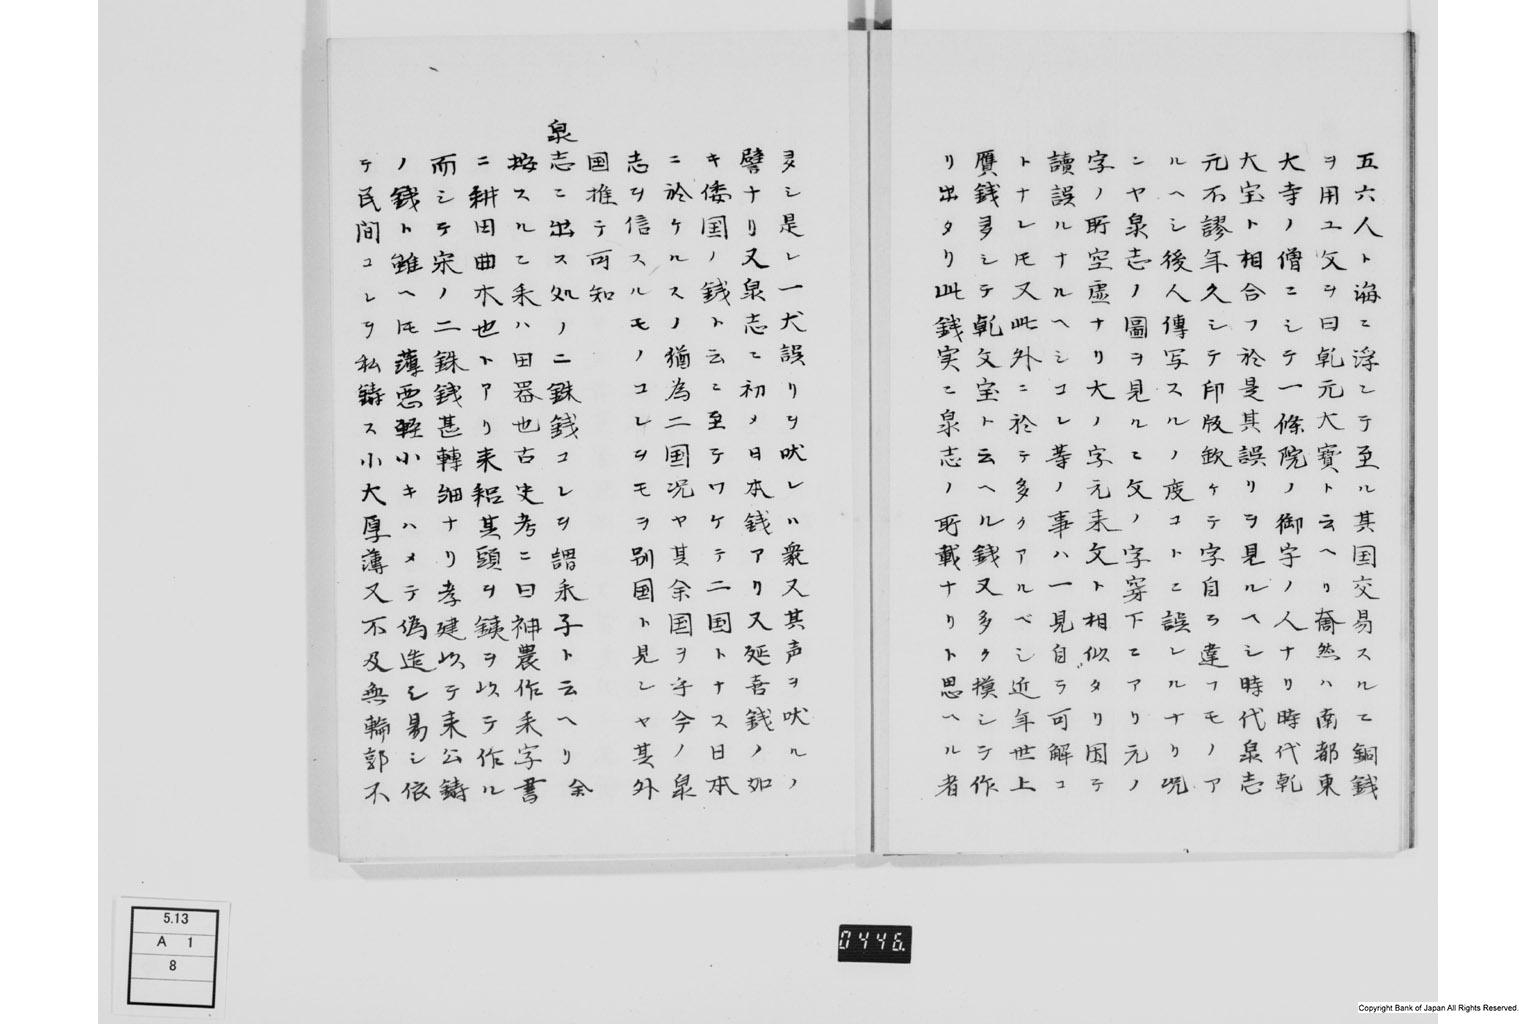 五六人ト海ニ浮ヒテ至ル其国交易スルニ銅銭
ヲ用ユ文ヲ曰乾元大寳ト云ヘリ奝然ハ南都東
大寺ノ僧ニシテ一條院ノ御宇ノ人ナリ時代乾
大宝ト相合フ於是其誤リヲ見ルヘシ時代泉志
元不謬年久シテ印版欽ケテ字自ラ違フモノア
ルヘシ後人傳写スルノ度コトニ誤レルナリ况
ンヤ泉志ノ圖ヲ見ルニ文ノ字穿下ニアリ元ノ
字ノ所空虚ナリ大ノ字元来文ト相似タリ因テ
讀誤ルナルヘシコレ等ノ事ハ一見自ラ可解コ
トナレ𪜈又此外ニ於テ多クアルベシ近年世上
贋銭多シテ乾文宝ト云ヘル銭又多ク摸シテ作
リ出タリ此銭実ニ泉志ノ所載ナリト思ヘル者
多シ是レ一犬誤リヲ吠レハ衆又其声ヲ吠ルノ
譬ナリ又泉志ニ初メ日本銭アリ又延喜銭ノ如
キ倭国ノ銭ト云ニ至テワケテ二国トナス日本
ニ於ケルスノ猶為二国况ヤ其余国ヲ乎今ノ泉
志ヲ信スルモノコレヲモヲ別国ト見シヤ其外
国推テ可知
泉志ニ出ス処ノ二銖銭コレヲ謂耒子ト云ヘリ余
按スルニ耒ハ田器也古史考ニ曰神農作耒字書
ニ耕田曲木也トアリ耒耜其頭ヲ銕ヲ以テ作ル
而シテ宋ノ二銖銭甚轉細ナリ孝建以テ来公鋳
ノ銭ト雖ヘ𪜈薄悪軽小キハメテ偽造シ易シ依
テ民間コレヲ私鋳ス小大厚薄又不及無輪郭不
5.13
A 1
8
0446.
Copyright Bank of Japan All Rights Reserved.